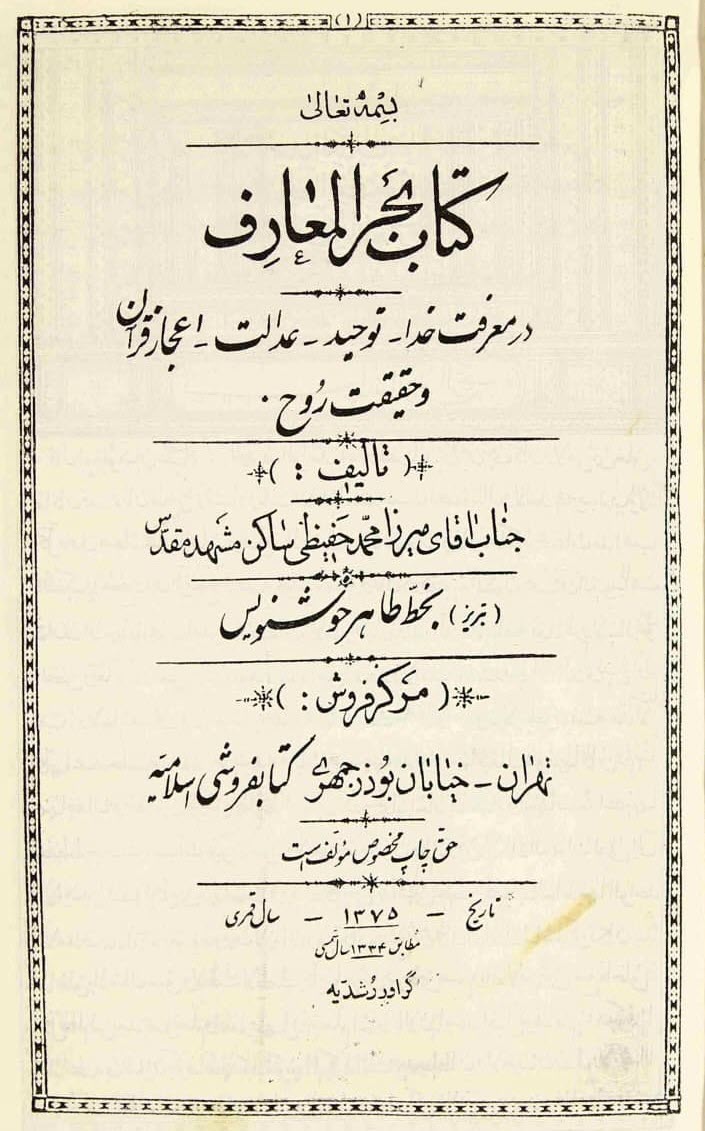 (۱)
بسمه تعالی
کتاب بحر المعارف
در معرفت خدا - توحید - عدالت - اعجاز قرآن
و حقیقت رُوح .
( تالیف : )
جناب اقای میرزا محمد حفیظی ساکن مشهد مقدّس
(تبریز) بخط طاهر خوشنویس
( مرکز فروش : )
تهران - خیابان بوذرجمهری کتابفروشی اسلامیه
حق چاپ مخصوص مؤلف است
تاریخ - ۱۳۷۵ - سال قمری
مطابق ۱۳۳۴ سال شمسی
گراور رُشدیه